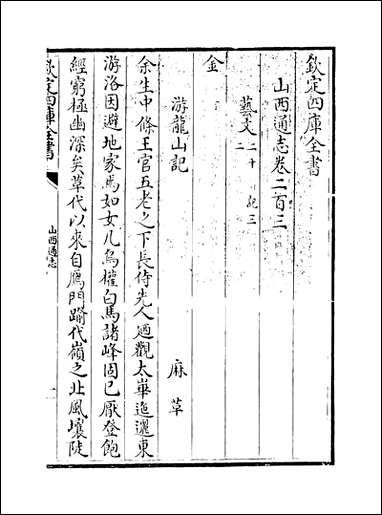 欽定四庫全書
山西通志卷二百三
藝文二十二 記三
金
游龍山記 麻革
余生中條王官五老之下長侍先人西觀太華迤邐東
游洛因避地家焉如女几烏權白馬諸峰固已厭登飽
經窮極幽深矣革代以來自鴈門踰代嶺之北風壤陡
欽定四庫全書
山西通志
一